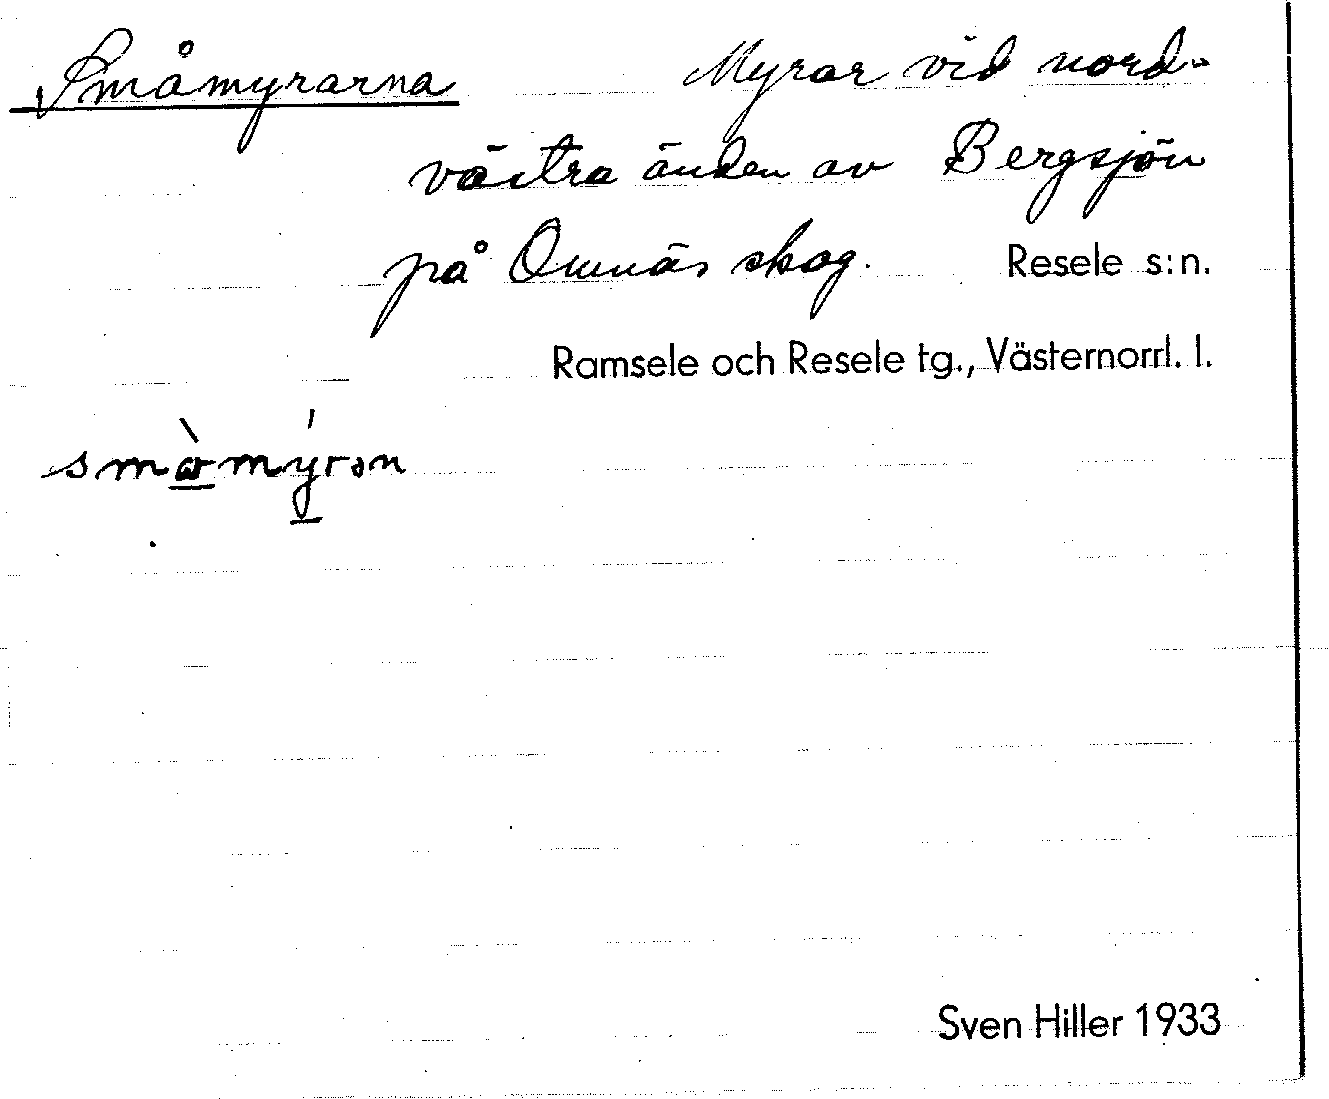 Småmyrarna Myrar vid nord-
västra änden av Bergsjön
på Omnäs skog. Resele s:n.
Ramsele och Resele tg., Västernorrl. l.
Sven Hiller 1933